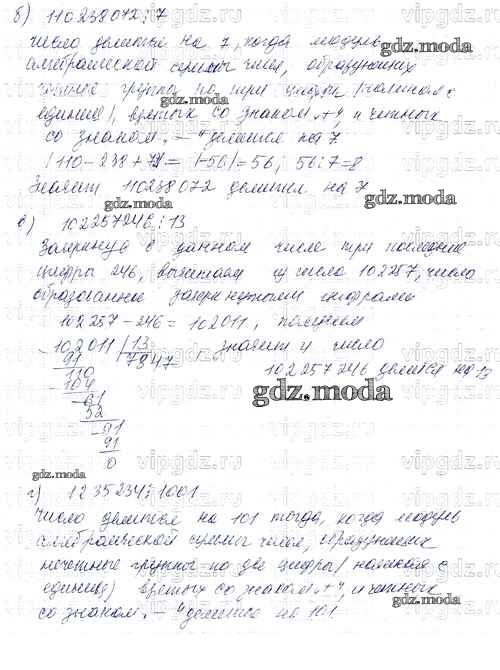 б) 110238072 : 7
число делится на 7, когда модуль
алгебраической суммы чисел, образующих
группы по три цифры (начиная с
единиц), взятых со знаком „+“, и четных
со знаком „–“ делится на 7
|110 – 238 + 72| = |-56| = 56; 56 : 7 = 8
Значит 110238072 делится на 7
в) 102257246 : 13
Зачеркнув в данном числе три последние
цифры 246, вычитаем из числа 102257, число
образованные зачеркнутыми цифрами
102257 – 246 = 102011, получаем
102011 | 13 значит и число
91 7847
110 102257246 делится на 13
104
61
52
91
91
0
г) 1235234 : 1001
Число делится на 101 тогда, когда модуль
алгебраической суммы чисел, образующих
нечетные группы по две цифры (начиная с
единиц) взятых со знаком „+“, и четных
со знаком „–“ делится на 101
gdz.moda
vipgdz.ru